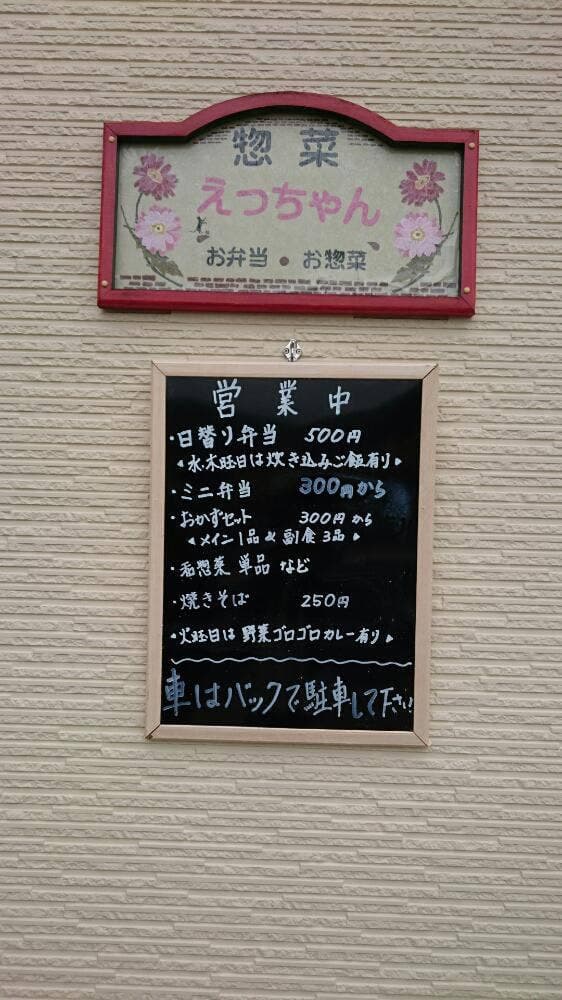 惣菜
えっちゃん
お弁当・お惣菜
営業中
・日替り弁当 500円
◀水・木旺日は炊き込みご飯有り▶
・ミニ弁当 300円から
・おかずセット 300円から
◀メイン1品&副食3品▶
・各惣菜 単品 など
・焼きそば 250円
・火旺日は野菜ゴロゴロカレー有り▶
車はバックで駐車して下さい